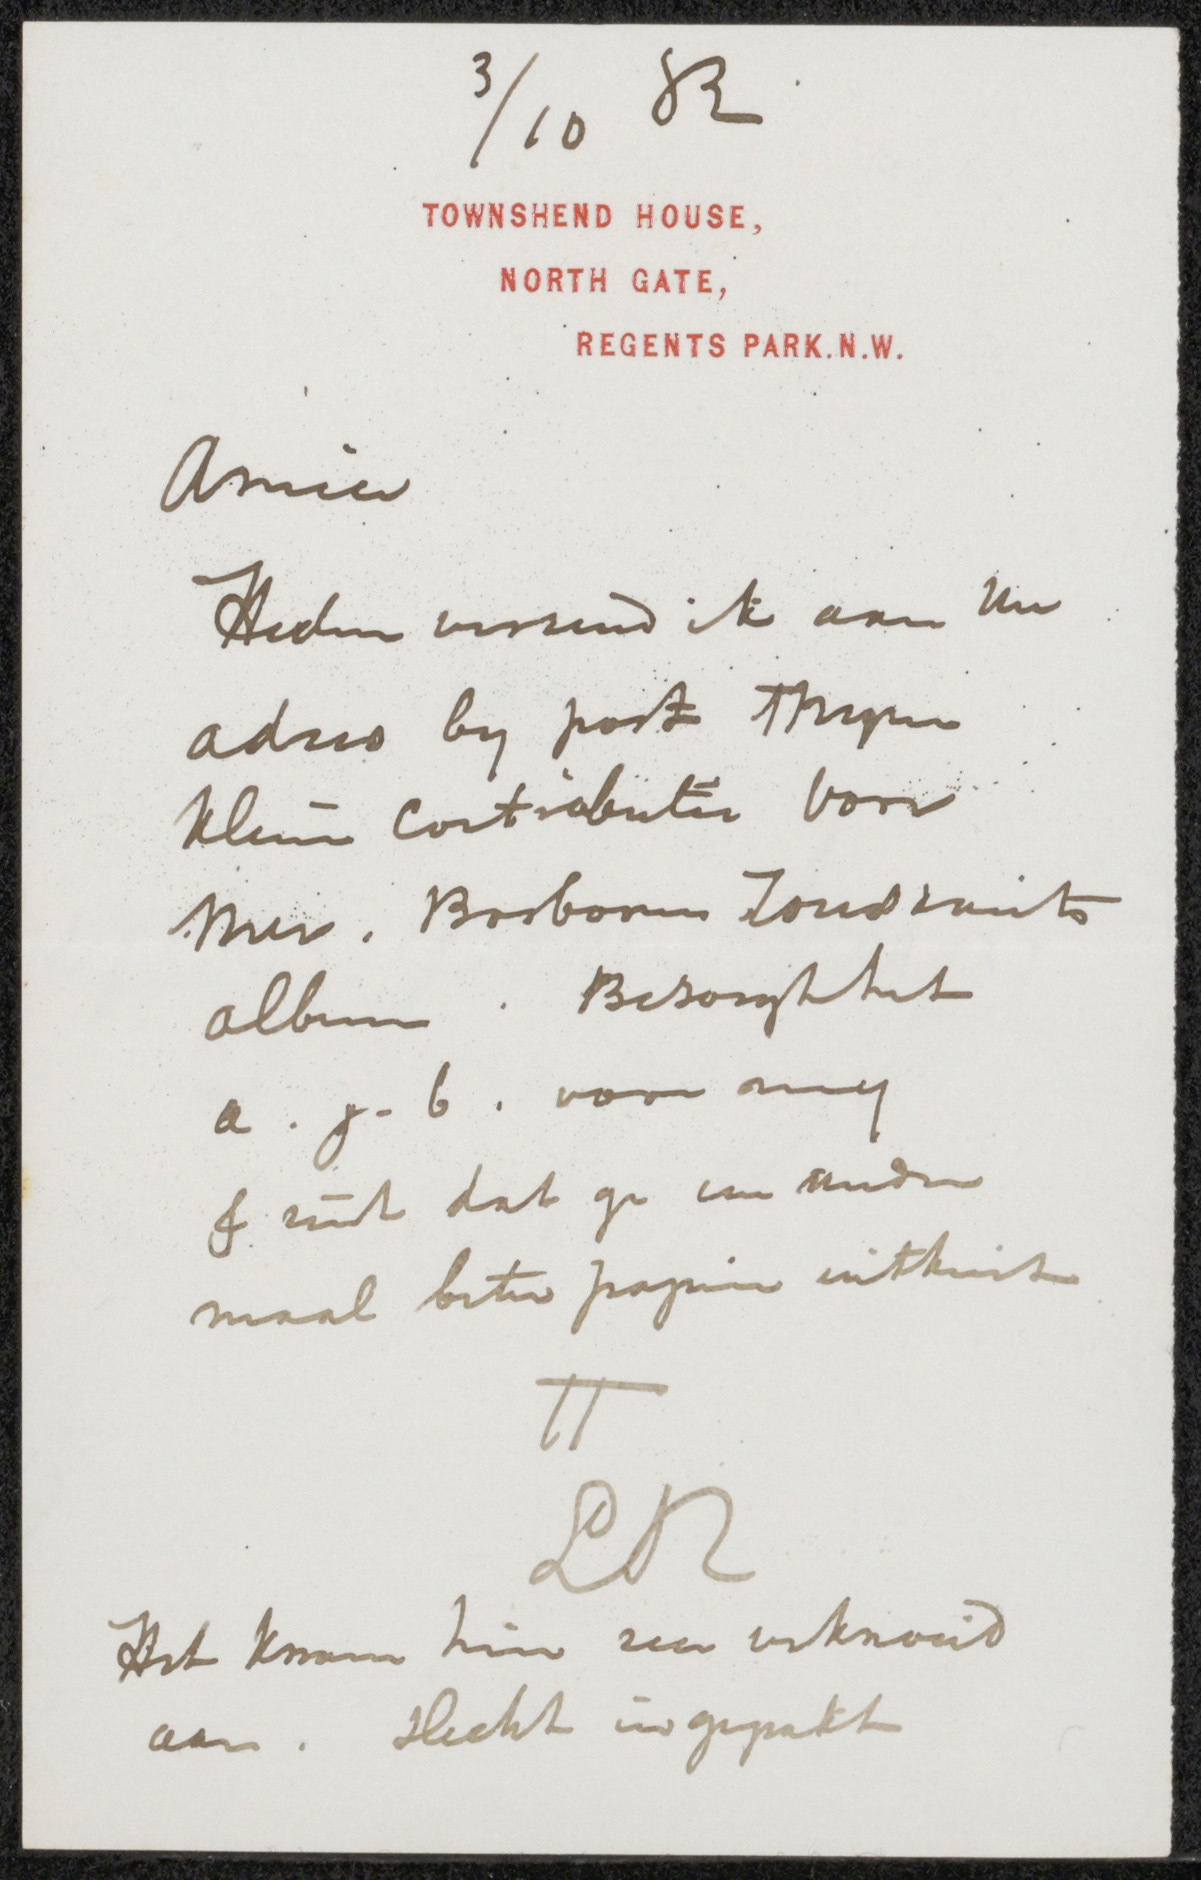 3/10 82
TOWNSHEND HOUSE,
NORTH GATE,
REGENTS PARK.N.W.
Amice
Heden verzend ik aan Uw
adres by post Mijn
klein contributie voor
Mev. Bosboom Toussaints
album. Bezorgt het
a.j.b. voor my
& ziet dat ge een ander
maal beter papier uitkiest
TT
LAT
Het kwam hier zeer verknoeid
aan. Slecht ingepakt